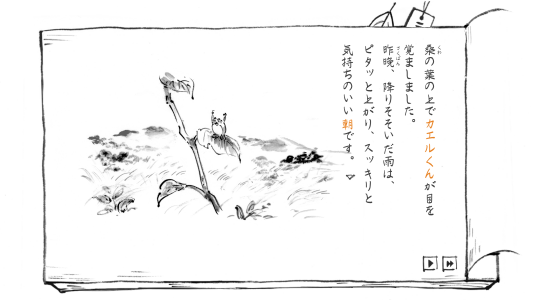 桑の葉の上でカエルくんが目を
覚ましました。
昨晩、降りそそいだ雨は、
ピタッと上がり、スッキリと
気持ちのいい朝です。